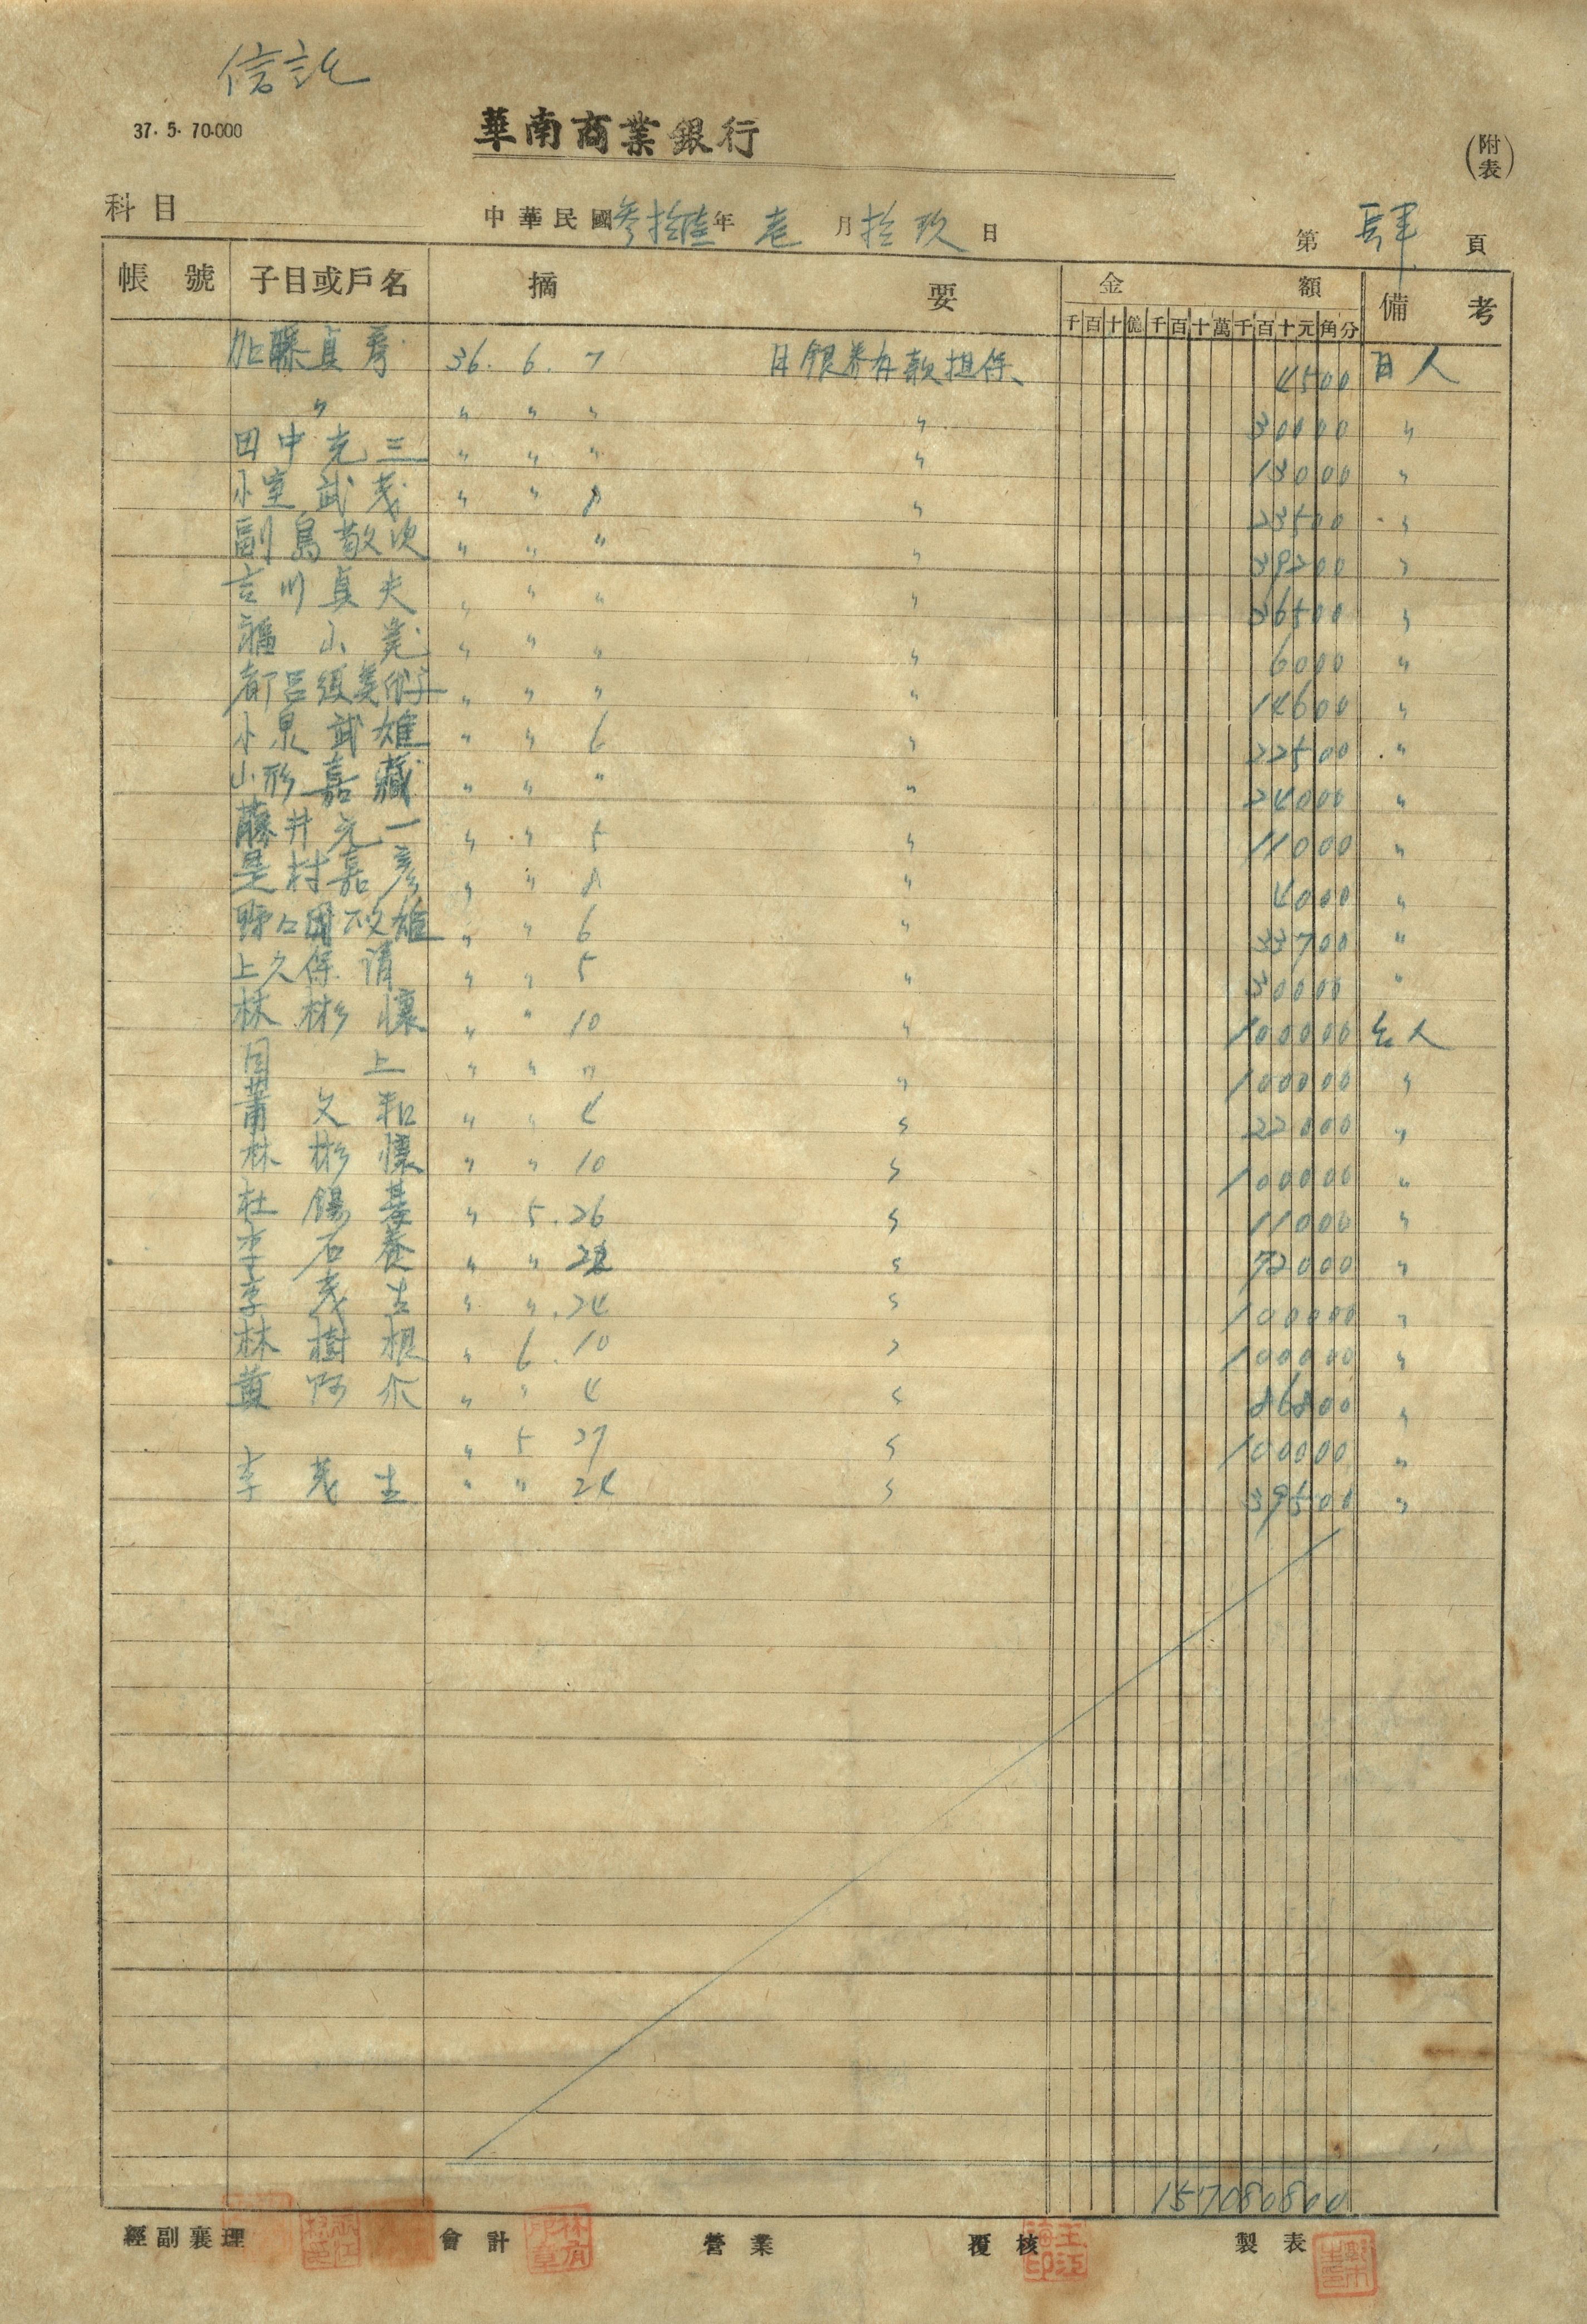 信託
37. 5. 70.000
華南商業銀行
(附表)
科目 中華民國參拾陸年 壱月拾玖日 第肆頁
帳號 子目或戶名 摘要 金額 備考
千百十億千百十萬千百十元角分
加藤貞彥 36. 6. 7 日銀券存款担保、 4500 日人
〃 〃 〃 〃 〃 30000 〃
田中充三 〃 〃 〃 〃 13000 〃
小室武茂 〃 〃 8 〃 23500 〃
副島敬次 〃 〃 〃 〃 39200 〃
吉川真夫 〃 〃 〃 〃 36500 〃
福山 〃 〃 〃 〃 6000 〃
都呂須 〃 〃 〃 〃 14600 〃
小泉武雄 〃 〃 6 〃 22500 〃
山形嘉藏 〃 〃 〃 〃 24000 〃
藤井元一 〃 〃 5 〃 11000 〃
是村嘉彥 〃 〃 8 〃 4000 〃
野口 雄 〃 〃 6 〃 33700 〃
上久保清 〃 〃 5 〃 30000 〃
林彬懷 〃 〃 10 〃 100000 台人
同上 〃 〃 〃 〃 100000 〃
蕭文和 〃 〃 4 〃 22000 〃
林彬懷 〃 〃 10 〃 100000 〃
杜錫 〃 5. 26 〃 11000 〃
李石養 〃 〃 〃 72000 〃
李茂生 〃 〃. 24 〃 100000 〃
林樹根 〃 6. 10 〃 100000 〃
黃阿 〃 〃 4 〃 86800 〃
〃 5 27 〃 100000 〃
李茂生 〃 〃 24 〃 39500 〃
157080800
經副襄理 會計 營業 覆核 製表